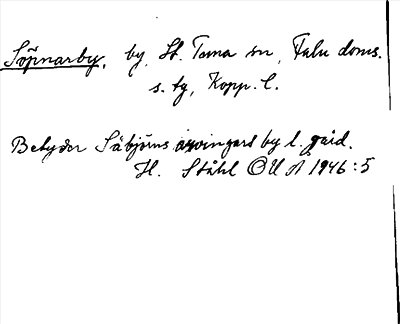 Söpnarby, by, St. Tuna sn, Falu doms.
s. tg, Kopp. l.
Betyder Säbjörns arvingars by l. gård.
H. Ståhl OUÅ 1946:5